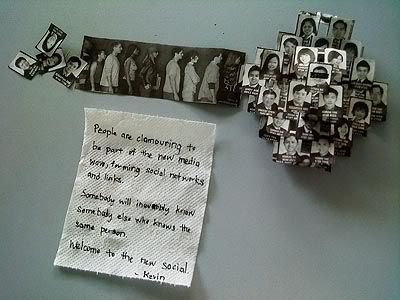 People are clamouring to
be part of the new media
wow, forming social networks
and links.
Somebody will inevitably know
somebody else who knows the
same person.
Welcome to the new social.
- Kevin